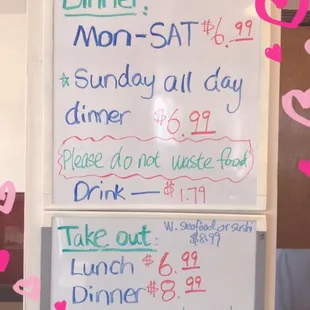 Dinner:
Mon-SAT $6.99
☆Sunday all day
dinner $6.99
Please do not waste food
Drink — $1.79
Take out:
W. seafood or sushi
$8.99
Lunch $6.99
Dinner $8.99